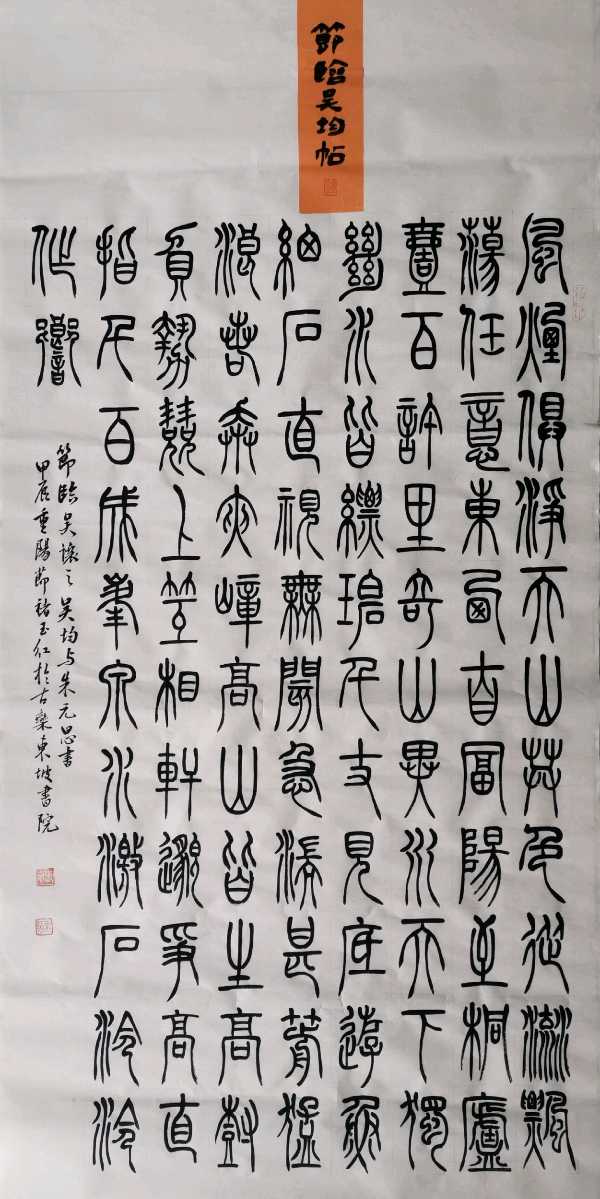 節臨吳均帖
風煙俱淨天山共色從流飄
蕩任意東西自富陽至桐廬
壹百許里奇山異水天下獨
絕水皆縹碧千丈見底游魚
細石直視無閡急湍甚箭猛
浪若奔夾嶂高山皆生高樹
負勢競上互相軒邈爭高直
指千百成峯泉水激石泠泠
作響
節臨吳讓之吳均与朱元思書
甲辰重陽節褚玉仁於古欒東坡書院